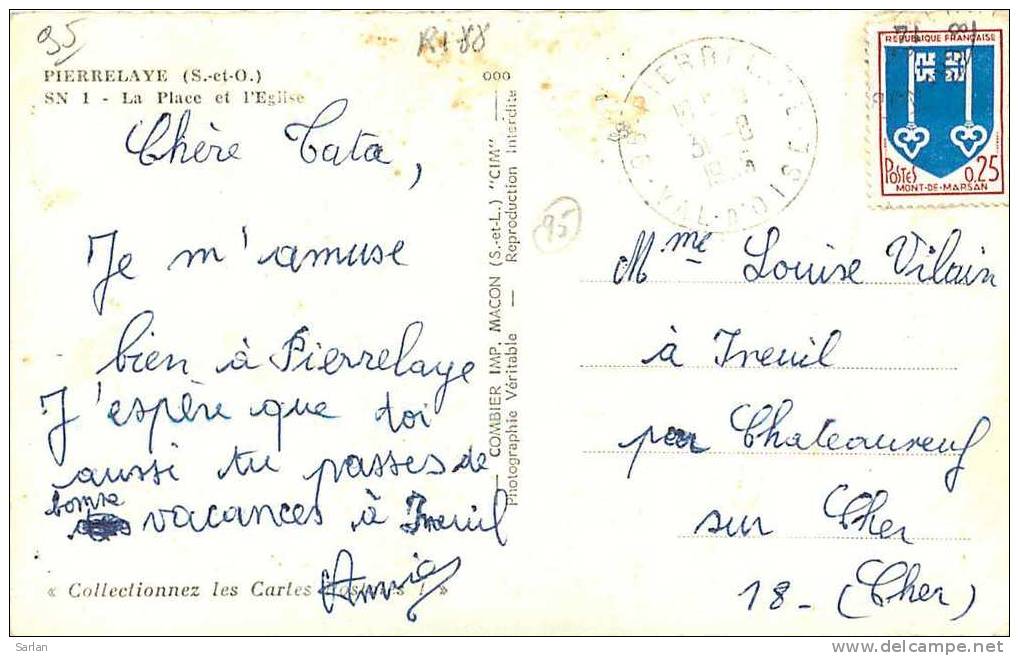 95
R1 88
PIERRELAYE (S.-et-O.)
SN 1 - La Place et l'Eglise
Chère Tata,
Je m'amuse
bien à Pierrelaye
J'espère que toi
aussi tu passes de
bonne
vacances à Treuil
Annie
« Collectionnez les Cartes Postales ! »
COMBIER IMP. MACON (S.-et-L.) "CIM"
Photographie Véritable — Reproduction Interdite
95
VAL-D'OISE
REPUBLIQUE FRANÇAISE
POSTES 0,25
MONT-DE-MARSAN
Mme Louise Vilain
à Treuil
par Chateauneuf
sur Cher
18 - (Cher)
Sarlan
www.delcampe.net